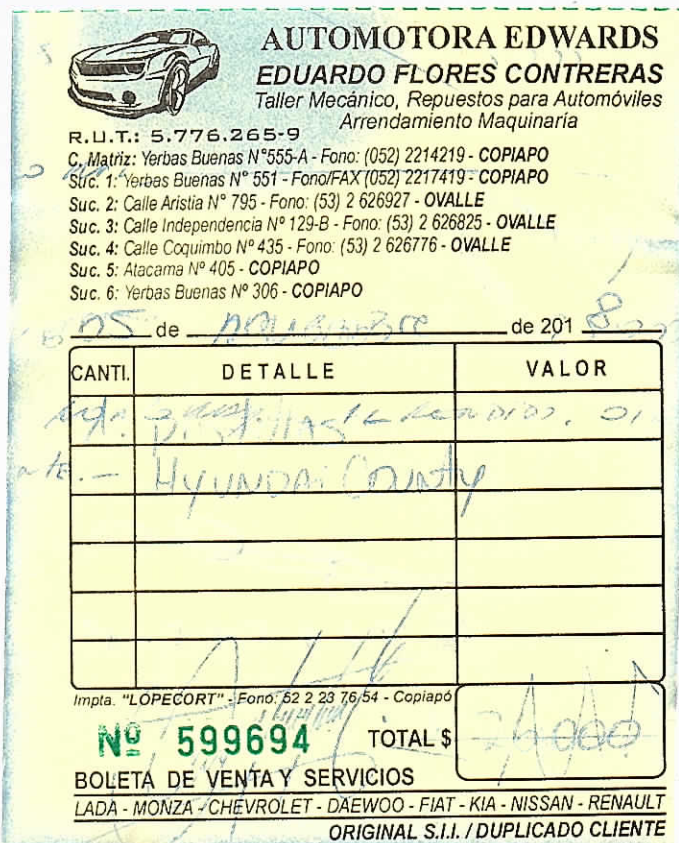 AUTOMOTORA EDWARDS
EDUARDO FLORES CONTRERAS
Taller Mecánico, Repuestos para Automóviles
Arrendamiento Maquinaria
R.U.T.: 5.776.265-9
C. Matriz: Yerbas Buenas N°555-A - Fono: (052) 2214219 - COPIAPO
Suc. 1: Yerbas Buenas N° 551 - Fono/FAX (052) 2217419 - COPIAPO
Suc. 2: Calle Aristia N° 795 - Fono: (53) 2 626927 - OVALLE
Suc. 3: Calle Independencia Nº 129-B - Fono: (53) 2 626825 - OVALLE
Suc. 4: Calle Coquimbo Nº 435 - Fono: (53) 2 626776 - OVALLE
Suc. 5: Atacama Nº 405 - COPIAPO
Suc. 6: Yerbas Buenas Nº 306 - COPIAPO
05 de de 2018
CANTI. DETALLE VALOR
Hyundai County
Impta. "LOPECORT" - Fono: 52 2 23 76 54 - Copiapó
Nº 599694 TOTAL $
BOLETA DE VENTA Y SERVICIOS
LADA - MONZA - CHEVROLET - DAEWOO - FIAT - KIA - NISSAN - RENAULT
ORIGINAL S.I.I. / DUPLICADO CLIENTE